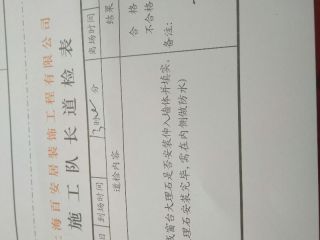 海百安居装饰工程有限公司
施工队长道检表
日 到场时间 分 离场时间
道检内容 结果
或窗台大理石是否安装伸入墙体并填实。 合格
不合格
理石安装完毕,需在内侧做防水) 备注: